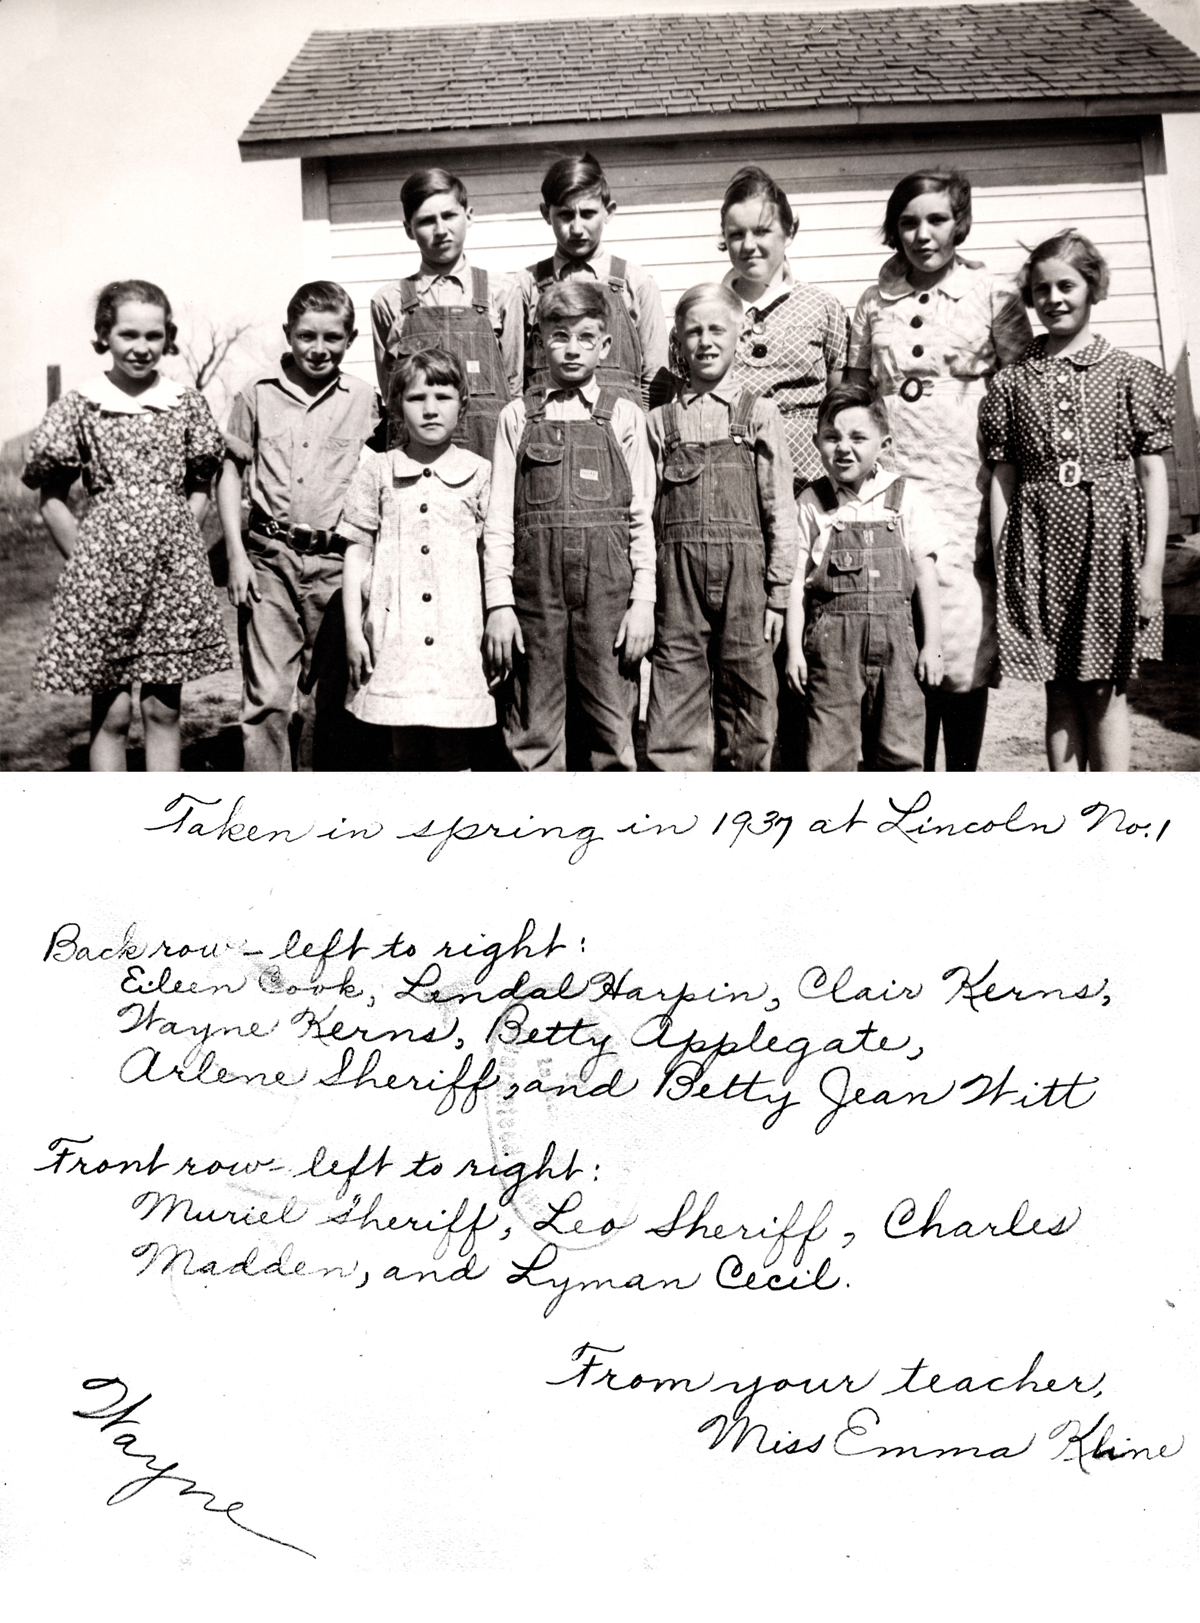 Taken in spring in 1937 at Lincoln No. 1
Back row - left to right:
Eileen Cook, Lendal Harpin, Clair Kerns,
Wayne Kerns, Betty Applegate,
Arlene Sheriff, and Betty Jean Witt
Front row - left to right:
Muriel Sheriff, Leo Sheriff, Charles
Madden, and Lyman Cecil.
From your teacher,
Miss Emma Kline
Wayne